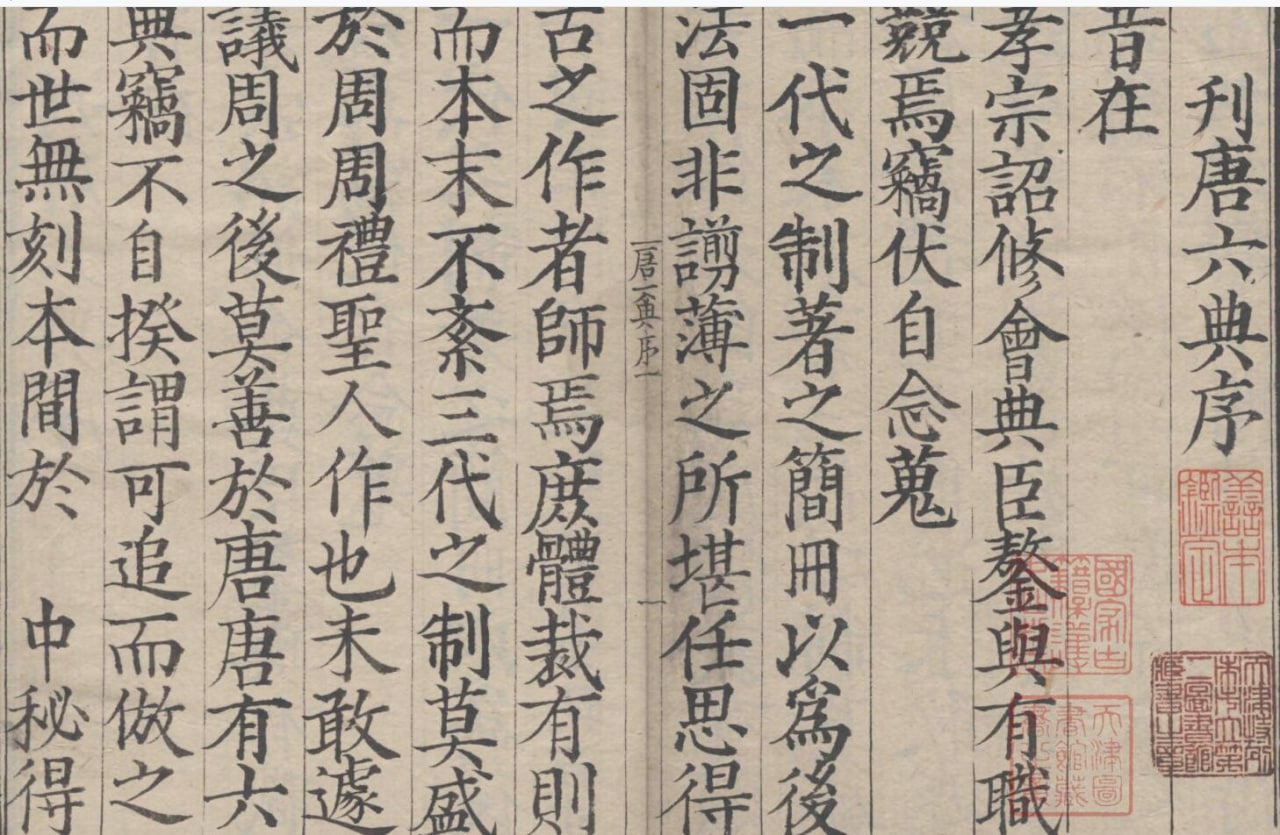 刊唐六典序
昔在
孝宗詔修會典臣鏊與有職
競焉竊伏自念蒐
一代之制著之簡冊以爲後
法固非謭薄之所堪任思得
古之作者師焉庻體裁有則
而本末不紊三代之制莫盛
於周周禮聖人作也未敢遽
議周之後莫善於唐唐有六
典竊不自揆謂可追而倣之
而世無刻本間於　中秘得
唐六典序一
一
善本
國家古籍
天津圖書館藏